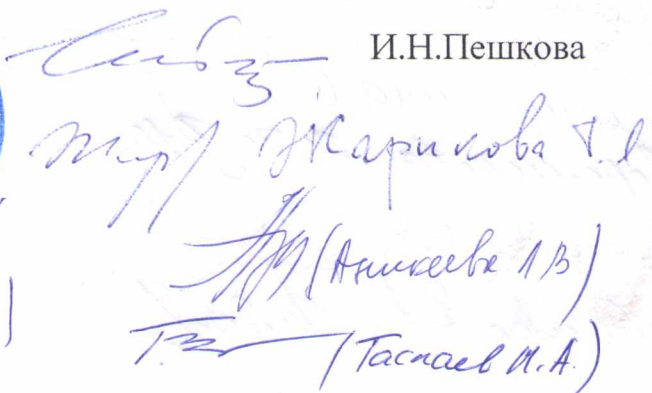 И.Н.Пешкова
Жарикова Т.Я
(Аникеева Л В)
(Таспаев И.А.)